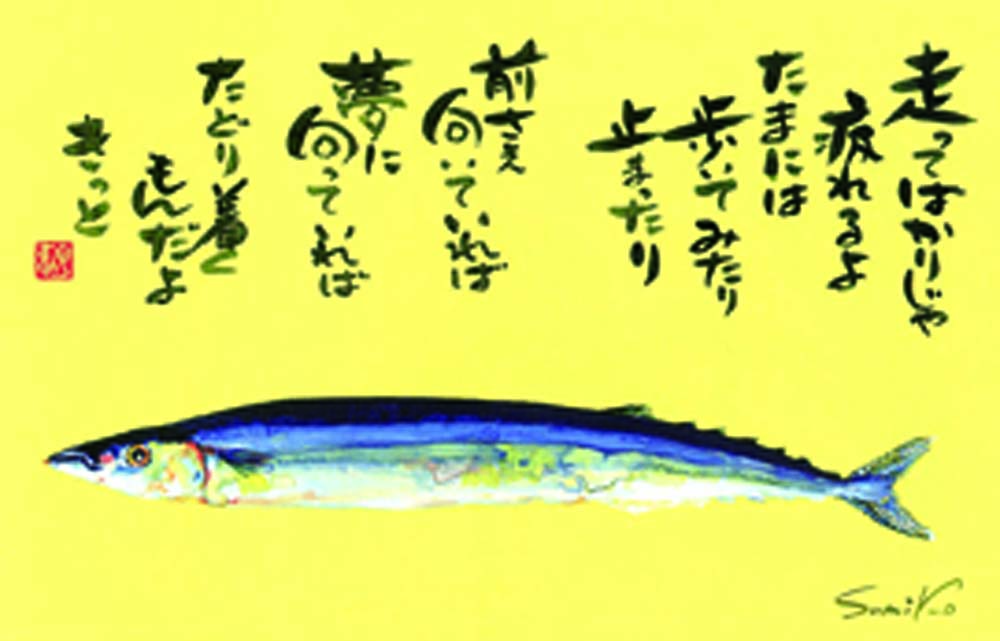 走ってばかりじゃ
疲れるよ
たまには
歩いてみたり
止まったり
前さえ
向いていれば
夢に
向っていれば
たどり着く
もんだよ
きっと
Sumiko